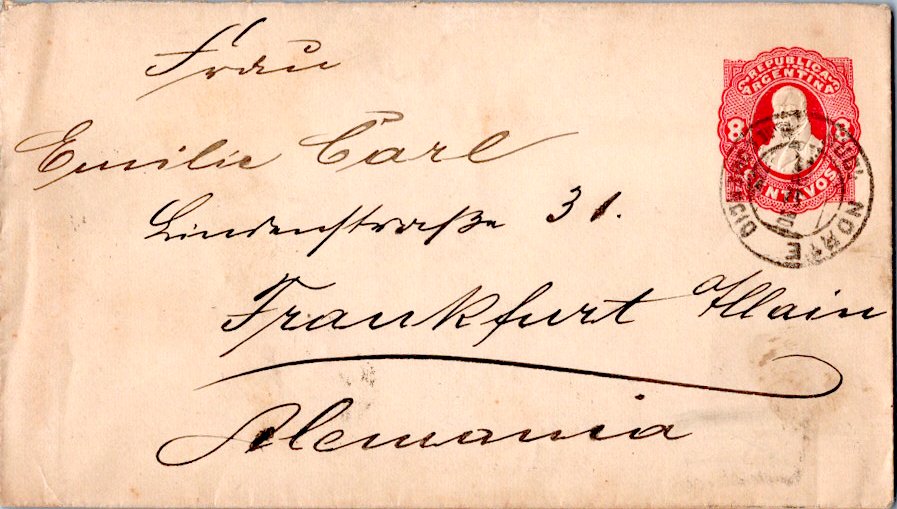 Frau
Emilie Carl
Lindenstraße 31.
Frankfurt Main
Alemania
REPUBLICA
ARGENTINA
8 8
CENTAVOS
NORTE